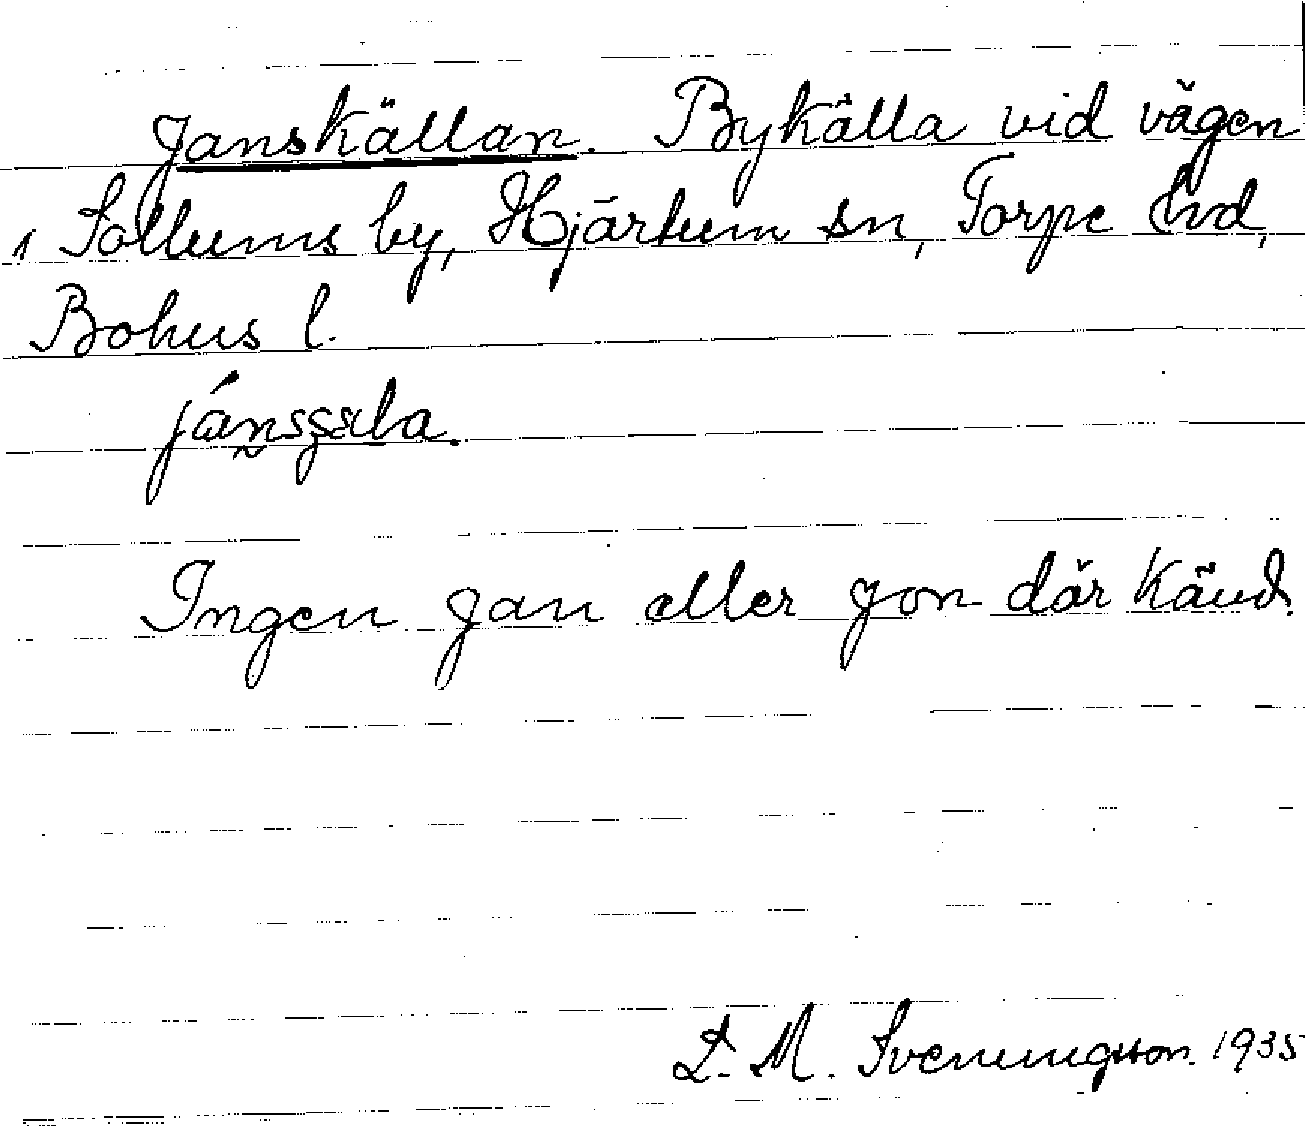 Janskällan. Bykälla vid vägen
i Sollums by, Hjärtum sn, Torpe hd,
Bohus l.
jánsçæla.
Ingen Jan eller Jon där känd.
L. M. Svenungsson. 1935